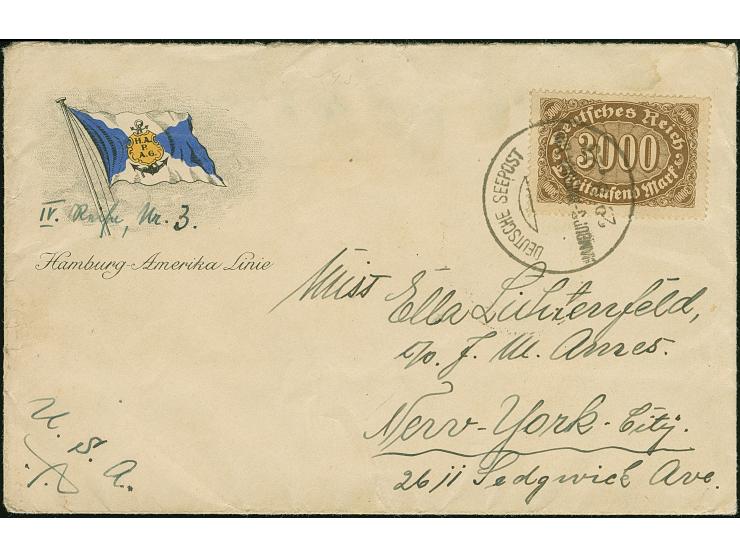 H.A.
P
A.G.
IV. Reise, Nr. 3.
Hamburg-Amerika Linie
Deutsches Reich
3000
Dreitausend Mark
3000
3000
3000
3000
DEUTSCHE SEEPOST
HAMBURG-
Miss Ella Lichtenfeld,
c/o. J. M. Annes.
New-York-City.
2611 Sedgwick Ave.
U. S. A.